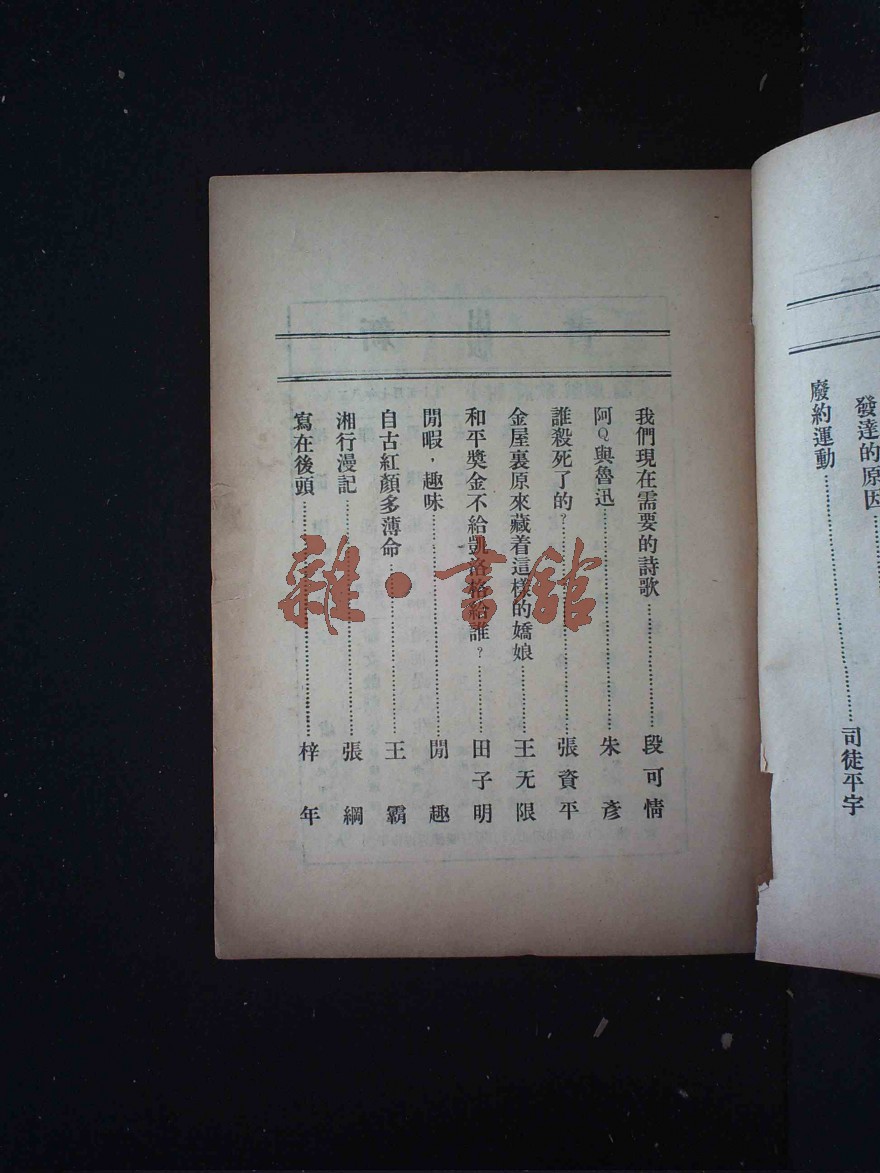 發達的原因
廢約運動……司徒平宇
我們現在需要的詩歌……段可情
阿Q與魯迅……朱彥
誰殺死了的?……張資平
金屋裏原來藏着這樣的嬌娘……王无限
和平獎金不給凱洛格給誰?……田子明
閒暇,趣味……閒趣
自古紅顏多薄命……王霸
湘行漫記……張綱
寫在後頭……梓年
雜·書館